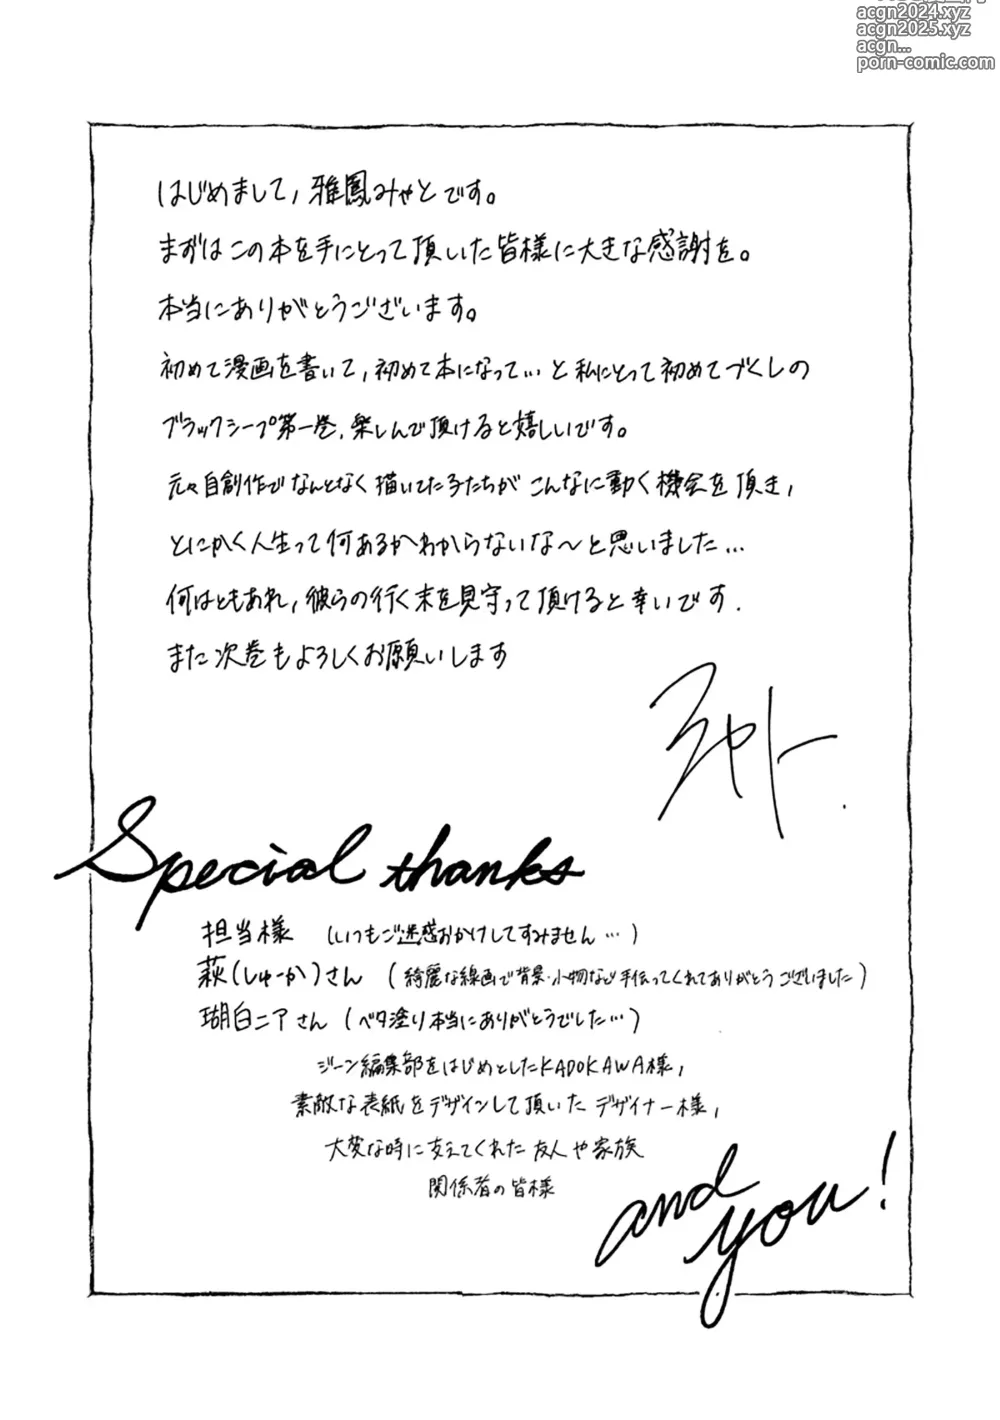 acgn2024.xyz
acgn2025.xyz
acgn...
porn-comic.com
はじめまして、雅鳳みやとです。
まずはこの本を手にとって頂いた皆様に大きな感謝を。
本当にありがとうございます。
初めて漫画を書いて、初めて本になって…と私にとって初めてづくしの
ブラックシープ第一巻、楽しんで頂けると嬉しいです。
元々自創作でなんとなく描いてた子たちがこんなに動く機会を頂き、
とにかく人生って何あるかわからないな〜と思いました…
何はともあれ、彼らの行く末を見守って頂けると幸いです.
また次巻もよろしくお願いします
みやト.
Special thanks
担当様 (いつもご迷惑おかけしてすみません…)
萩(しゅーか)さん (綺麗な線画で背景・小物など手伝ってくれてありがとうございました)
瑚白ニアさん (ベタ塗り本当にありがとうでした…)
ジーン編集部をはじめとしたKADOKAWA様、
素敵な表紙をデザインして頂いたデザイナー様、
大変な時に支えてくれた友人や家族
関係者の皆様
and you!